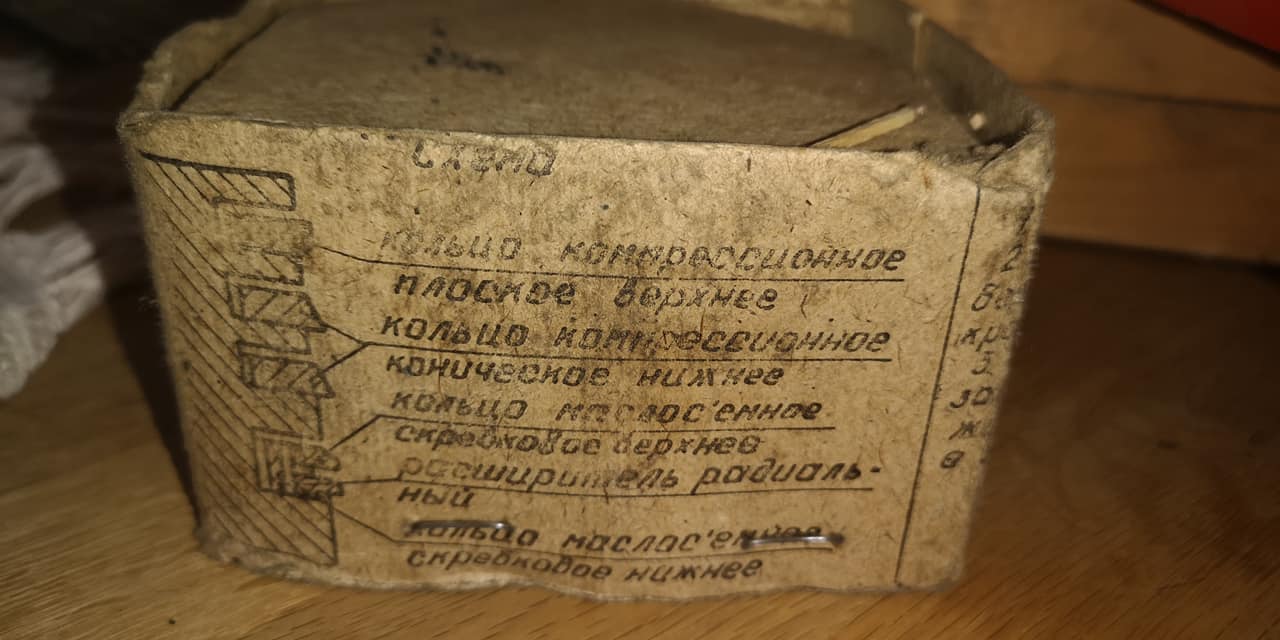 Схема
кольцо компрессионное
плоское верхнее
кольцо компрессионное
коническое нижнее
кольцо маслос'емное
скребковое верхнее
расширитель радиаль-
ный
кольцо маслос'емное
скребковое нижнее
2
3